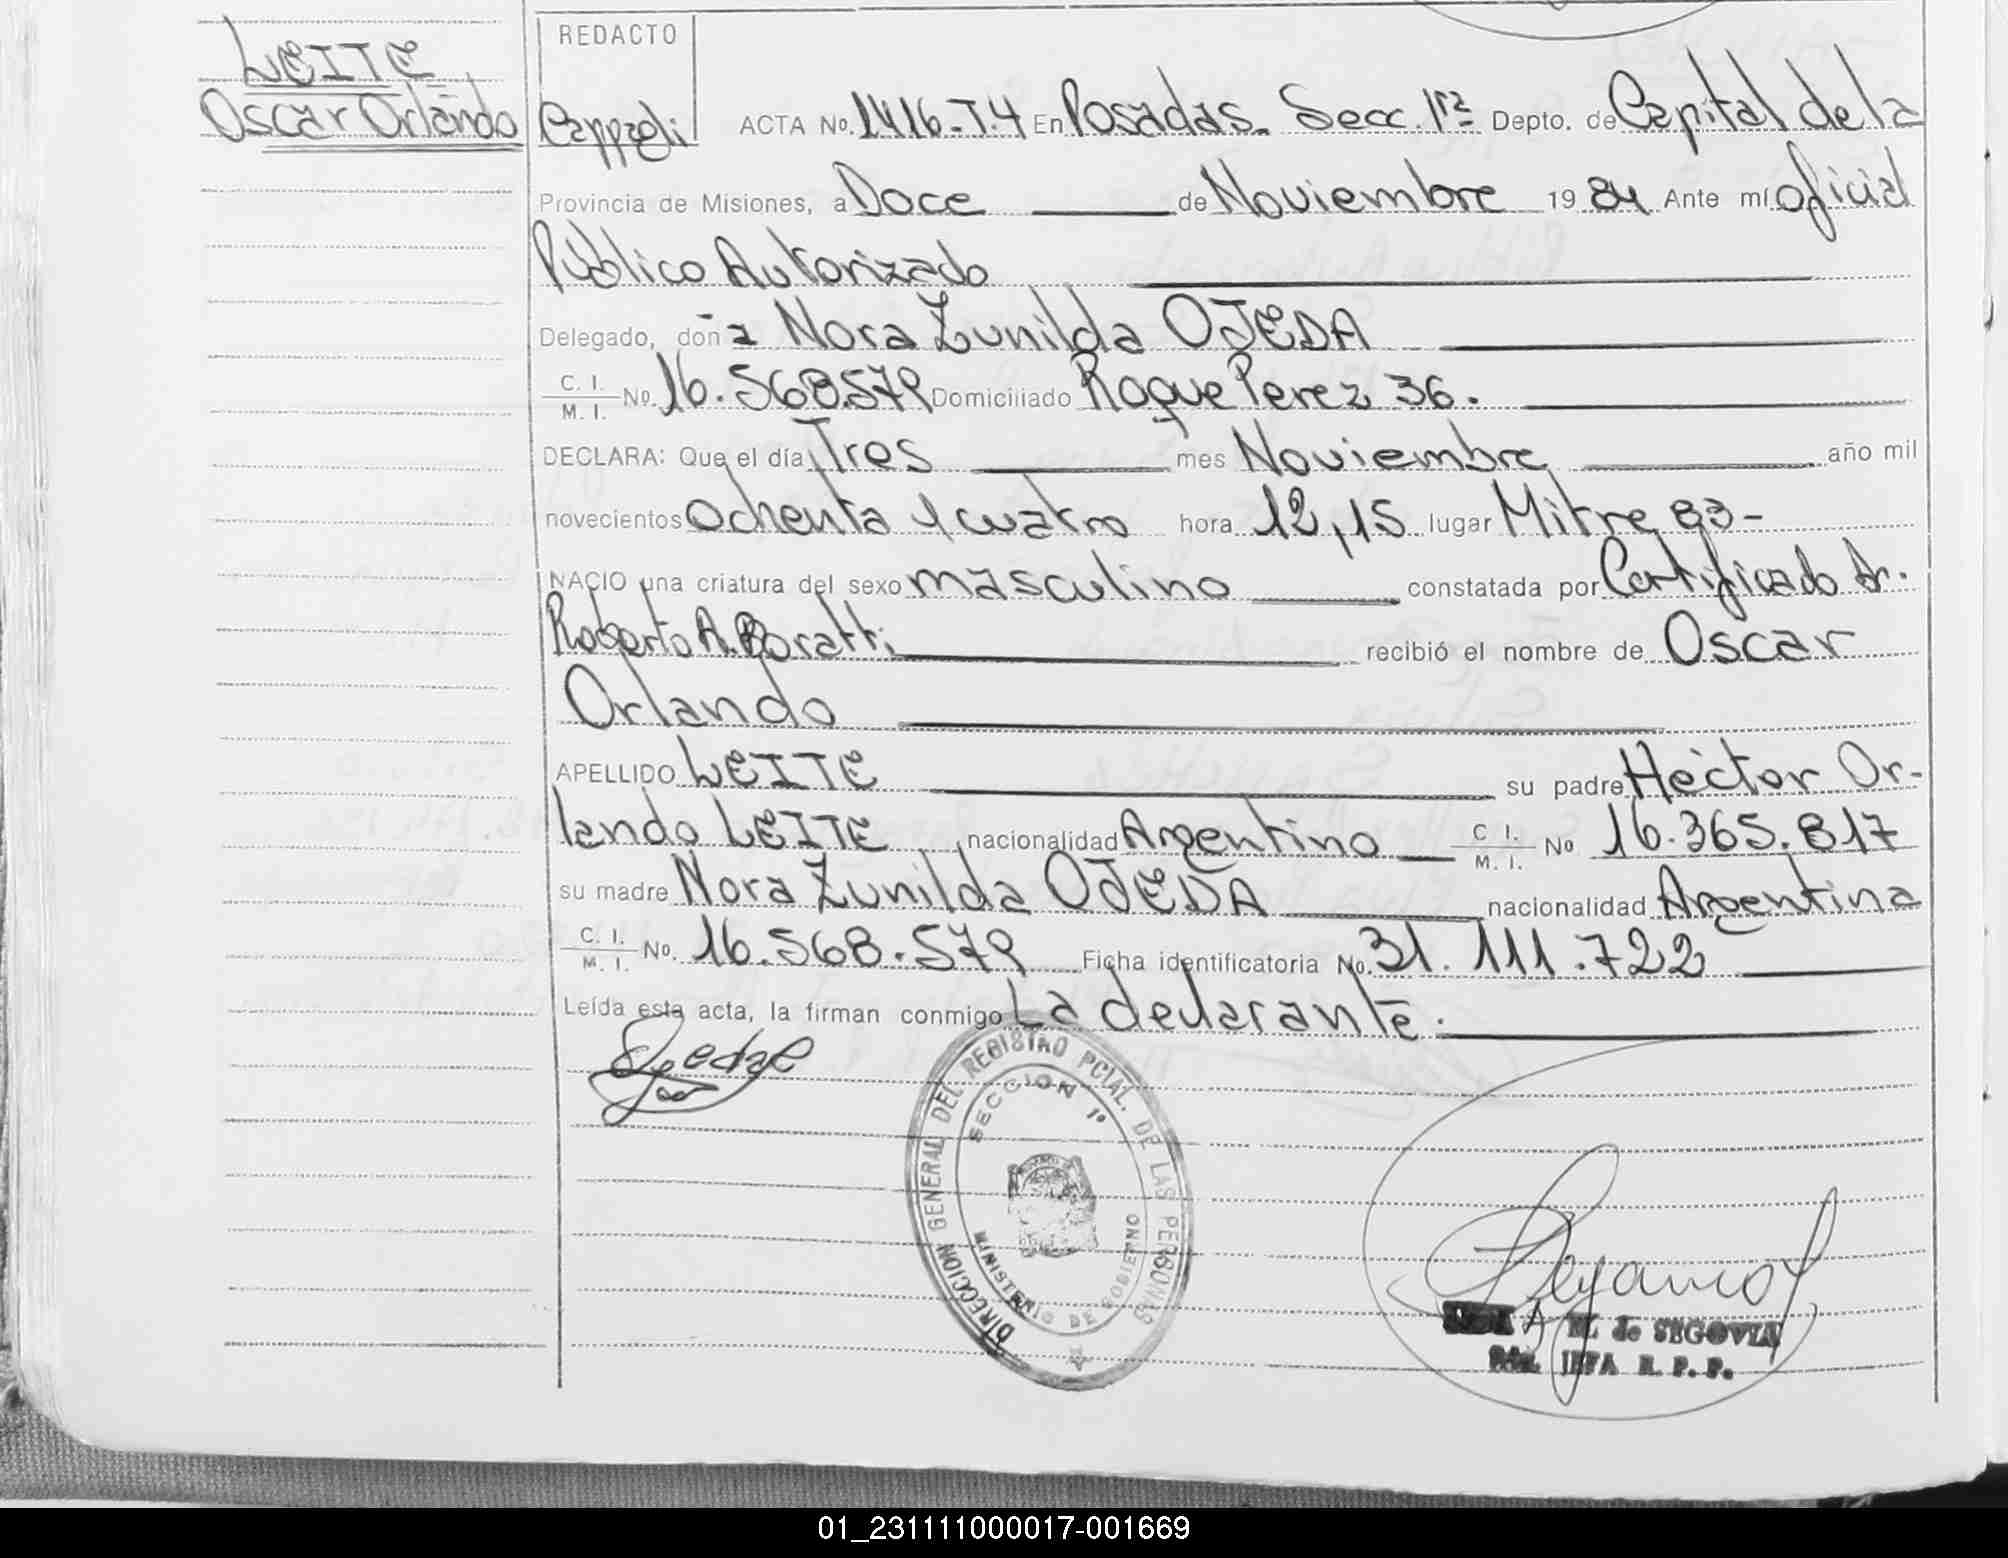 LEITE
Oscar Orlando
REDACTO
ACTA No. 1416-T.4 En Posadas. Secc. 1ra Depto. de Capital de la
Provincia de Misiones, a Doce de Noviembre 1984 Ante mí oficial
Público Autorizado
Delegado, doña Nora Zunilda OJEDA
C. I. M. I. No. 16.568.579 Domiciliado Roque Perez 36.
DECLARA: Que el día Tres mes Noviembre año mil
novecientos ochenta y cuatro hora 12,15 lugar Mitre 83-
NACIO una criatura del sexo masculino constatada por Certificado Dr.
Roberto A. Boratti recibió el nombre de Oscar
Orlando
APELLIDO LEITE su padre Héctor Or-
lando LEITE nacionalidad Argentino C. I. M. I. No 16.365.817
su madre Nora Zunilda OJEDA nacionalidad Argentina
C. I. M. I. No. 16.568.579 Ficha identificatoria No. 31.111.722
Leída esta acta, la firman conmigo La declarante.
DIRECCION GENERAL DEL REGISTRO PCIAL. DE LAS PERSONAS
SECCION 1º
MINISTERIO DE GOBIERNO
de SEGOVIA
JEFA R. P. P.
01_231111000017-001669